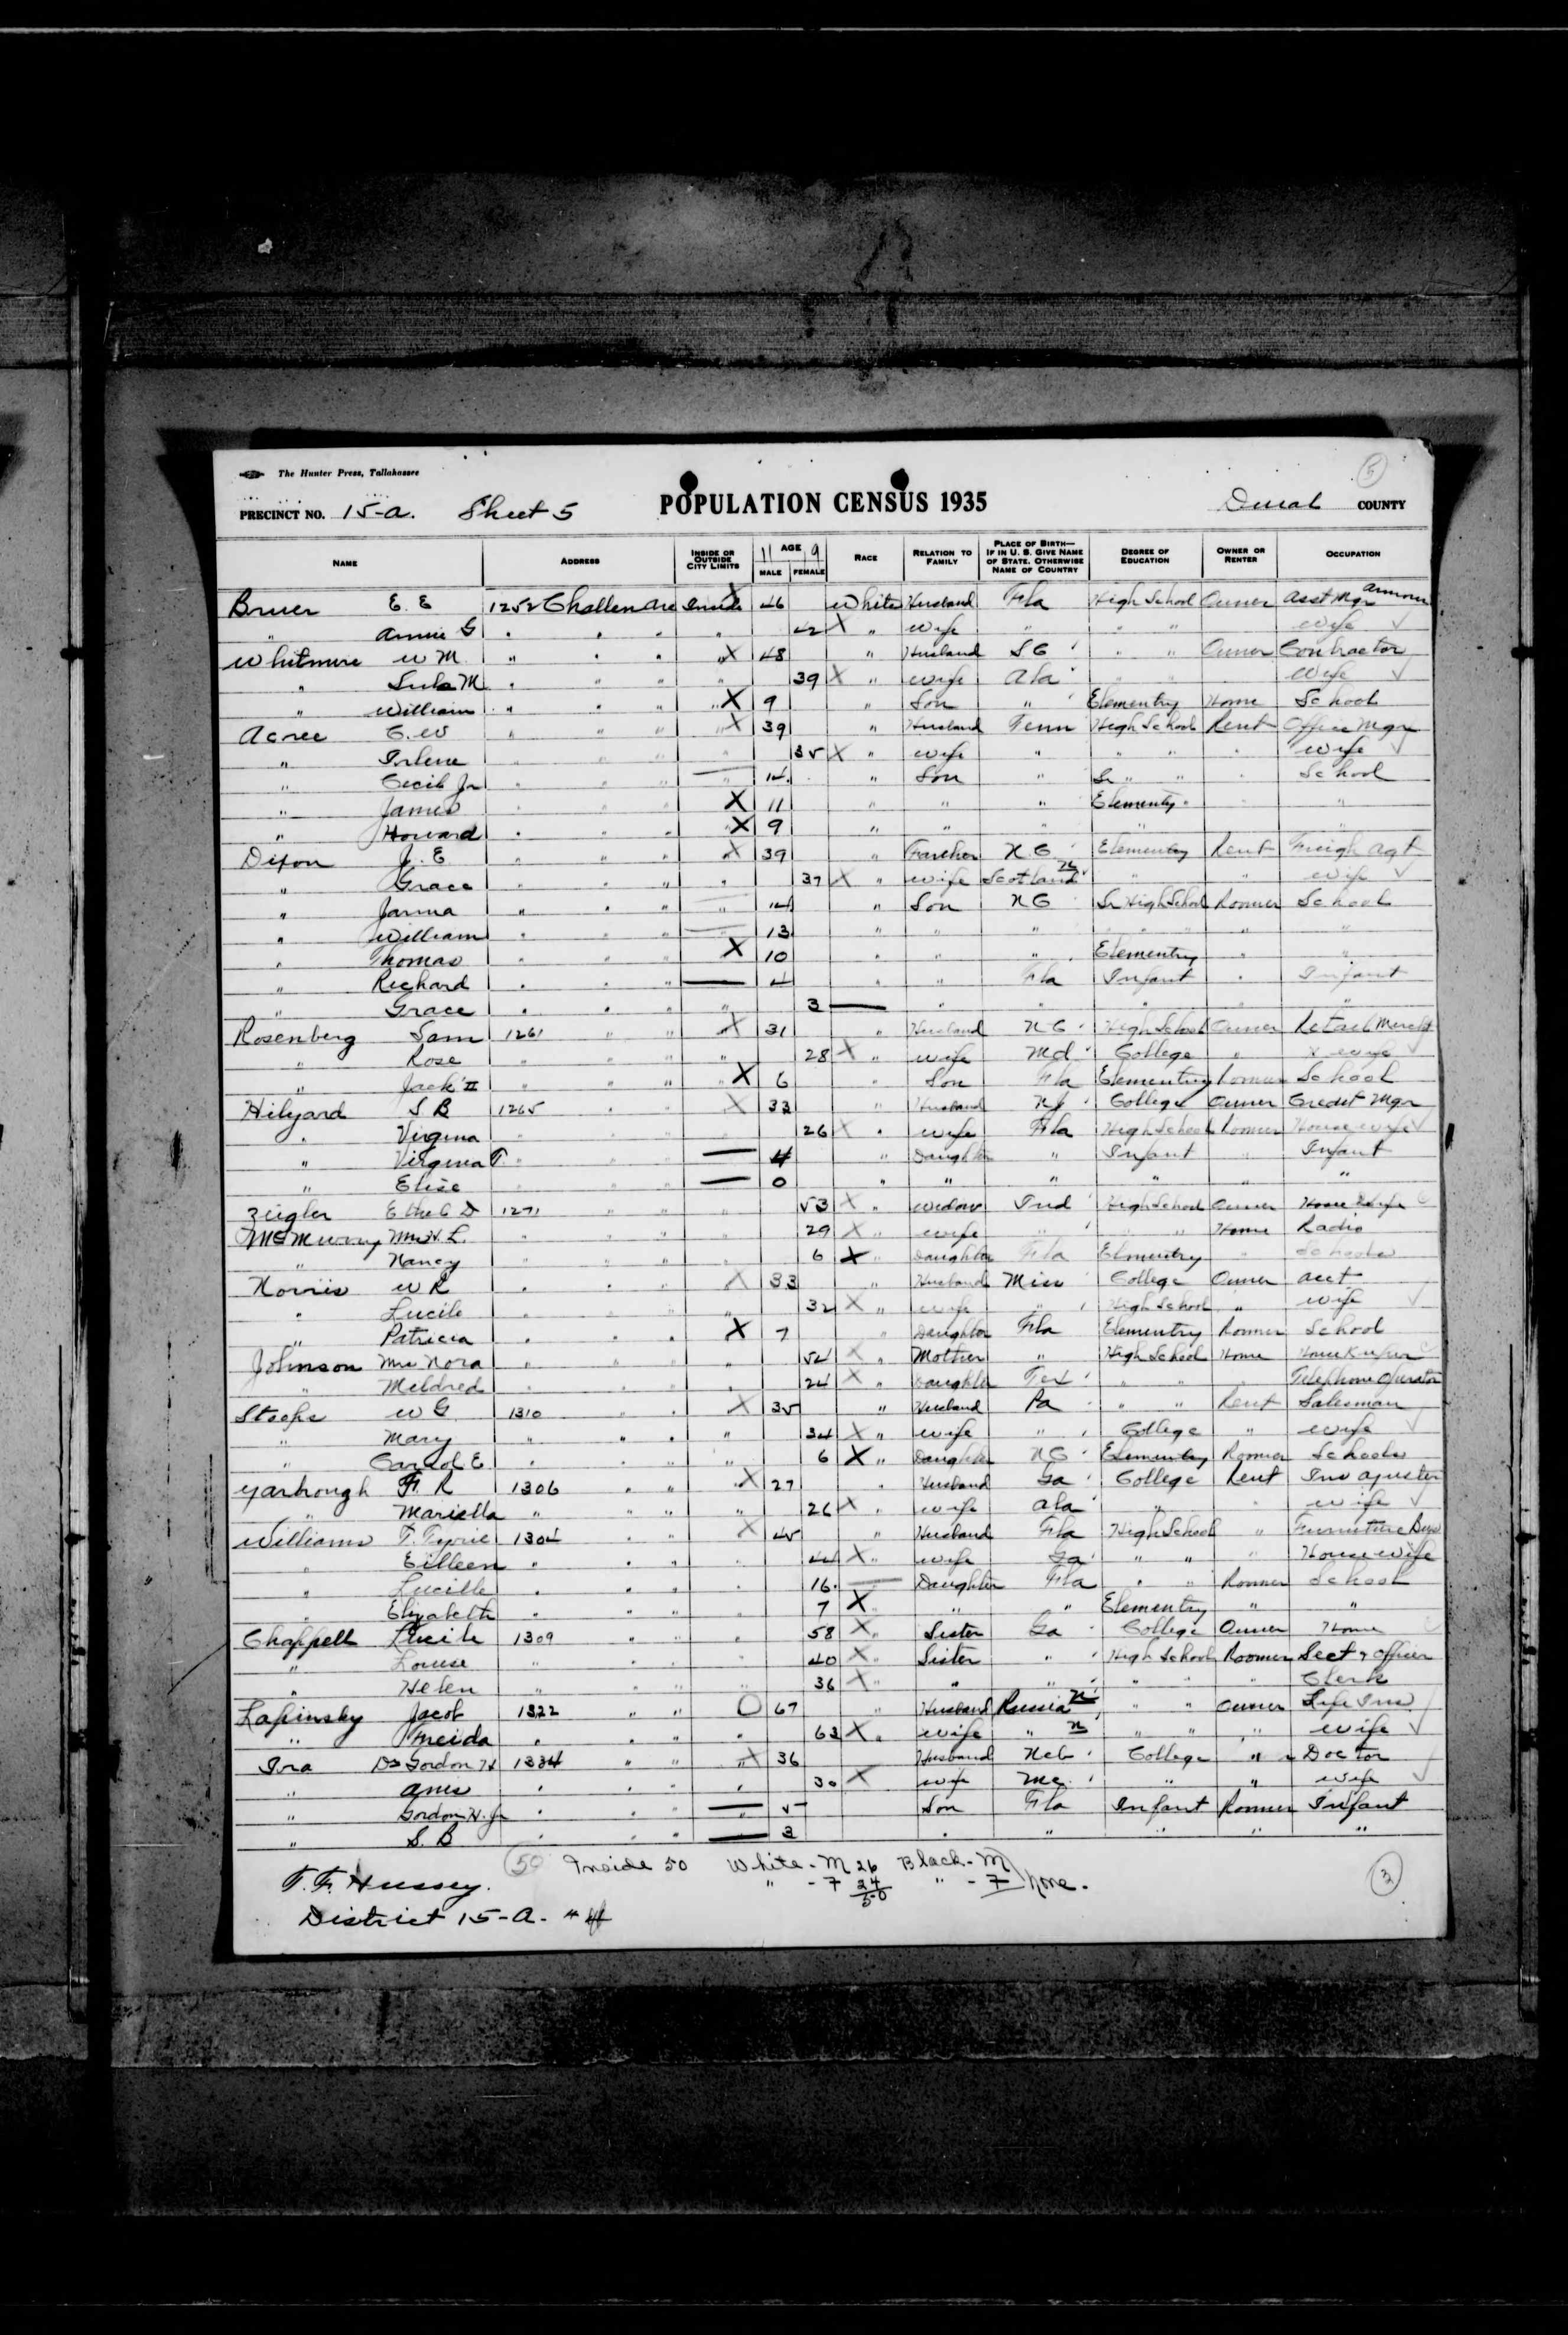 The Hunter Press, Tallahassee
5
PRECINCT NO. 15-a. Sheet 5 POPULATION CENSUS 1935 Duval COUNTY
NAME ADDRESS INSIDE OR OUTSIDE CITY LIMITS 11 AGE 9 MALE FEMALE RACE RELATION TO FAMILY PLACE OF BIRTH—IF IN U. S. GIVE NAME OF STATE. OTHERWISE NAME OF COUNTRY DEGREE OF EDUCATION OWNER OR RENTER OCCUPATION
E. E 1252 Challen Ave Inside X 46 White Husband Fla High School Owner Asst Mgr
" Annie G " " " " 42 X " Wife " " " Wife ✓
Whitmire W M. " " " " X 48 " Husband S C " " Owner Contractor
" Lula M " " " " 39 X " Wife Ala " " Wife ✓
" William " " " " X 9 " Son " Elementry Home School
Acree C. W " " " " X 39 " Husband Tenn High School Rent Office Mgr
" Irlene " " " " 35 X " Wife " " " Wife ✓
" Cecil Jr " " " " — 14 " Son " Sr " " " School
" James " " " X 11 " " " Elementy " "
" Howard " " " X 9 " " " " " "
Dixon J. E " " " X 39 " N. C Elementry Rent Freigh Agt
" Grace " " " " 37 X " Wife Scotland " " Wife ✓
" " " " " — 14 " Son N C Sr High School Roomer School
" William " " " — 13 " " " " " " "
" Thomas " " " X 10 " " " Elementry " "
" Richard " " " — 4 " " Fla Infant " Infant
" Grace " " " " 3 — " " " " "
Rosenberg Sam 1261 " " X 31 " Husband N C High School Owner Retail Mercht
" Rose " " " " 28 X " Wife Md College " Wife ✓
" Jack II " " " " X 6 " Son Fla Elementry Roomer School
Hilyard S B 1265 " " X 33 " Husband N J College Owner Credit Mgr
" Virginia " " " " 26 X " Wife Fla High School Roomer House wife ✓
" Virginia T. " " " — 4 " Daughter " Infant " Infant
" Elise " " " — 0 " " " " " "
Zeigler Ethel D 1271 " " " 53 X " Widow Ind High School Owner House Wife
McMurray Mrs H. L. " " " " 29 X " Wife " " " Home Radio
" Nancy " " " " 6 X " Daughter Fla Elmentry " Schools
Norris W R " " " X 33 " Husband Miss College Owner Acct
" Lucile " " " " 32 X " Wife " High School " Wife ✓
" Patricia " " " X 7 " Daughter Fla Elementry Roomer School
Johnson Mrs Nora " " " " 54 X " Mother " High School Home House Keeper
" Mildred " " " " 24 X " Daughter Tex " " " Telephone Operator
W G 1310 " " X 35 " Husband Pa " " Rent Salesman
" Mary " " " " 34 X " Wife " College " Wife ✓
" Carrol E " " " " 6 X " Daughter N C Elementry Roomer Schools
Yarbrough F. R 1306 " " X 27 " Husband Ga College Rent Ins ajuster
" Mariella " " " " 26 X " Wife Ala " " Wife ✓
Williams T. 1304 " " X 45 " Husband Fla High School " Furniture Bus
" Eilleen " " " " 44 X " Wife Ga " " " House wife
" Lucille " " " " 16 — Daughter Fla " " Roomer School
" Elizabeth " " " " 7 X " " " Elementry " "
Chappell Lucile 1309 " " " 58 X " Sister Ga College Owner Home
" Louise " " " " 40 X " Sister " High School Roomer Sect & Officer
" Helen " " " " 36 X " " " " " " Clerk
Lapinsky Jacob 1322 " " O 67 " Husband Russia " " Owner Life Ins
" " " " " 63 X " Wife " " " " Wife ✓
Ira Dr Gordon H 1334 " " " X 36 Husband Neb College " Doctor
" " " " " 30 X Wife Me. " " Wife ✓
" Gordon H. Jr " " " — 5 Son Fla Infant Roomer Infant
" S. B " " " — 3 " " " " "
50 Inside 50 White - M 26 Black - M
T. F. Hussey. " - F 24 " - F None.
50
3
District 15-A.